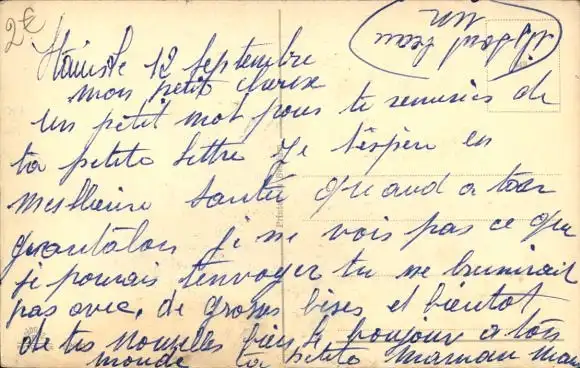 2€
Stains le 12 septembre
mon petit
un petit mot pour te remercies de
ta petite lettre je t'espère en
meilleure santé quand a ton
pantalon je ne vois pas ce que
je pourais t'envoyer tu ne
pas avec. de grosses bises et bientot
de tes nouvelles bien le boujour a tous
monde ta petite maman